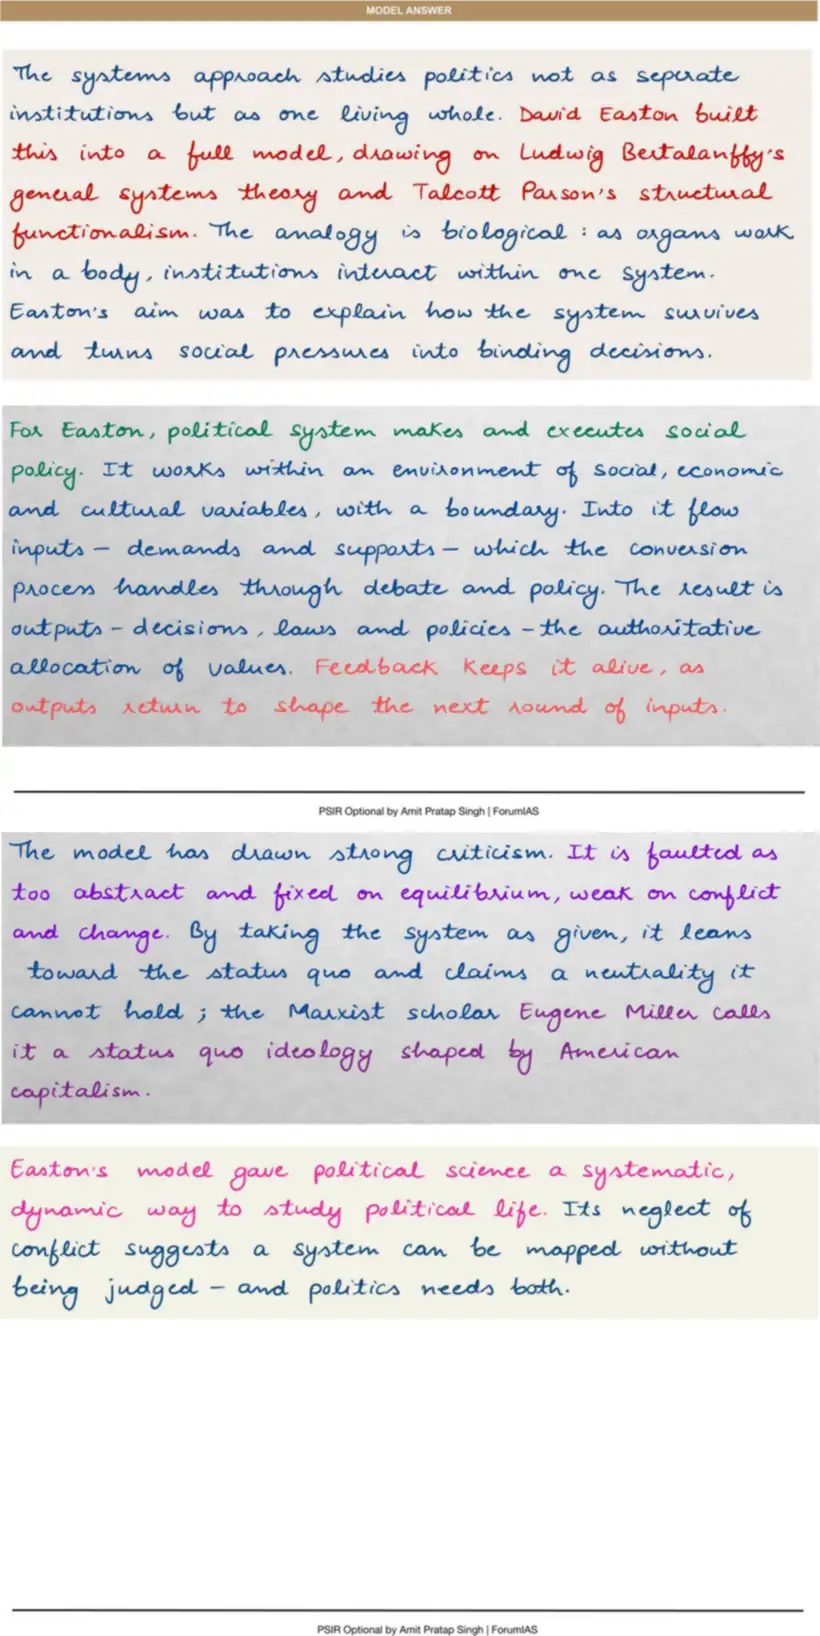 MODEL ANSWER
The systems approach studies politics not as seperate
institutions but as one living whole. David Easton built
this into a full model, drawing on Ludwig Bertalanffy's
general systems theory and Talcott Parson's structural
functionalism. The analogy is biological : as organs work
in a body, institutions interact within one system.
Easton's aim was to explain how the system survives
and turns social pressures into binding decisions.
For Easton, political system makes and executes social
policy. It works within an environment of social, economic
and cultural variables, with a boundary. Into it flow
inputs – demands and supports – which the conversion
process handles through debate and policy. The result is
outputs – decisions, laws and policies – the authoritative
allocation of values. Feedback keeps it alive, as
outputs return to shape the next round of inputs.
PSIR Optional by Amit Pratap Singh | ForumIAS
The model has drawn strong criticism. It is faulted as
too abstract and fixed on equilibrium, weak on conflict
and change. By taking the system as given, it leans
toward the status quo and claims a neutrality it
cannot hold ; the Marxist scholar Eugene Miller calls
it a status quo ideology shaped by American
capitalism.
Easton's model gave political science a systematic,
dynamic way to study political life. Its neglect of
conflict suggests a system can be mapped without
being judged – and politics needs both.
PSIR Optional by Amit Pratap Singh | ForumIAS